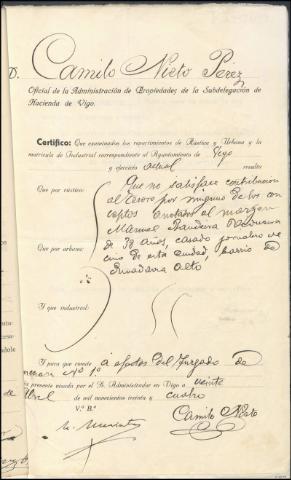 D. Camilo Nieto Perez
Oficial de la Administración de Propiedades de la Subdelegación de
Hacienda de Vigo.
Certifico: Que examinados los repartimientos de Rústica y Urbana y la
matrícula de Industrial correspondiente al Ayuntamiento de Vigo
y ejercicio actual resulta:
Que por rústica:
Que no satisface contribucion
al Tesoro por ninguno de los con
ceptos anotados al margen
Manuel Bandeira
de 38 años, casado jornalero ve
Que por urbana:
cino de esta ciudad, barrio de
Alto
Y que industrial:
Y para que conste a efectos del Juzgado de
Nº 1º
la presente visada por el Sr. Administrador en Vigo a veinte
Abril de mil novecientos treinta y cuatro
V.º B.º
Camilo Nieto